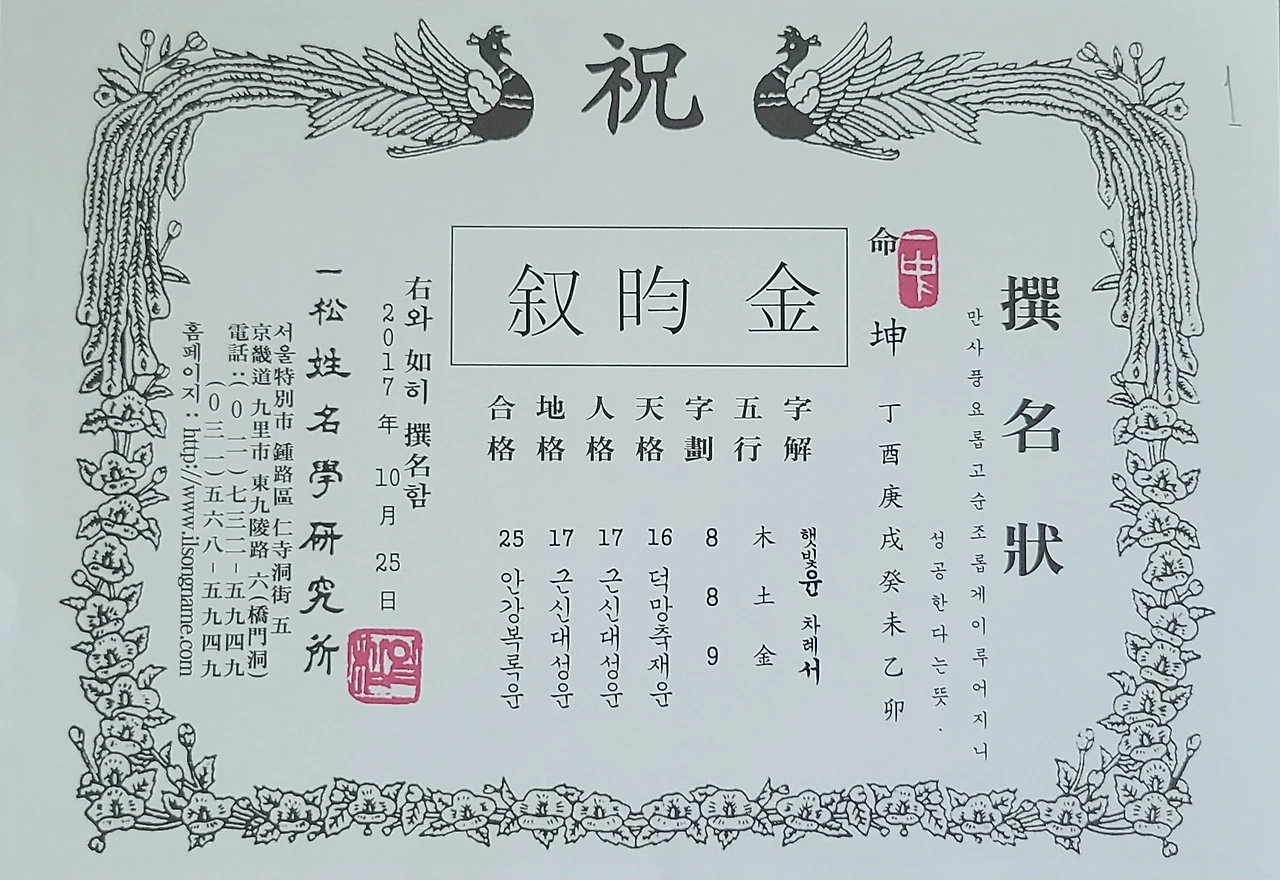 祝
撰名狀
만사풍요롭고순조롭게이루어지니
성공한다는뜻.
命
坤 丁酉庚戌癸未乙卯
金昀叙
字解 햇빛윤 차례서
五行 木 土 金
字劃 8 8 9
天格 16 덕망축재운
人格 17 근신대성운
地格 17 근신대성운
合格 25 안강복록운
右와 如히 撰名함
2017年 10月 25日
一松姓名學硏究所
서울特別市 鍾路區 仁寺洞街 五
京畿道 九里市 東九陵路 六(橋門洞)
電話:(０二)七三二-五九四九
(０三一)五六八-五九四九
홈페이지: http://www.ilsongname.com
1